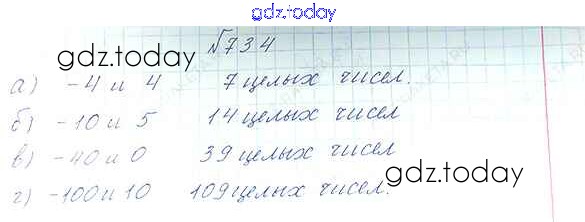 gdz.today
№734
gdz.today
а) -4 и 4 7 целых чисел.
б) -10 и 5 14 целых чисел
в) -40 и 0 39 целых чисел
г) -100 и 10 109 целых чисел.
gdz.today